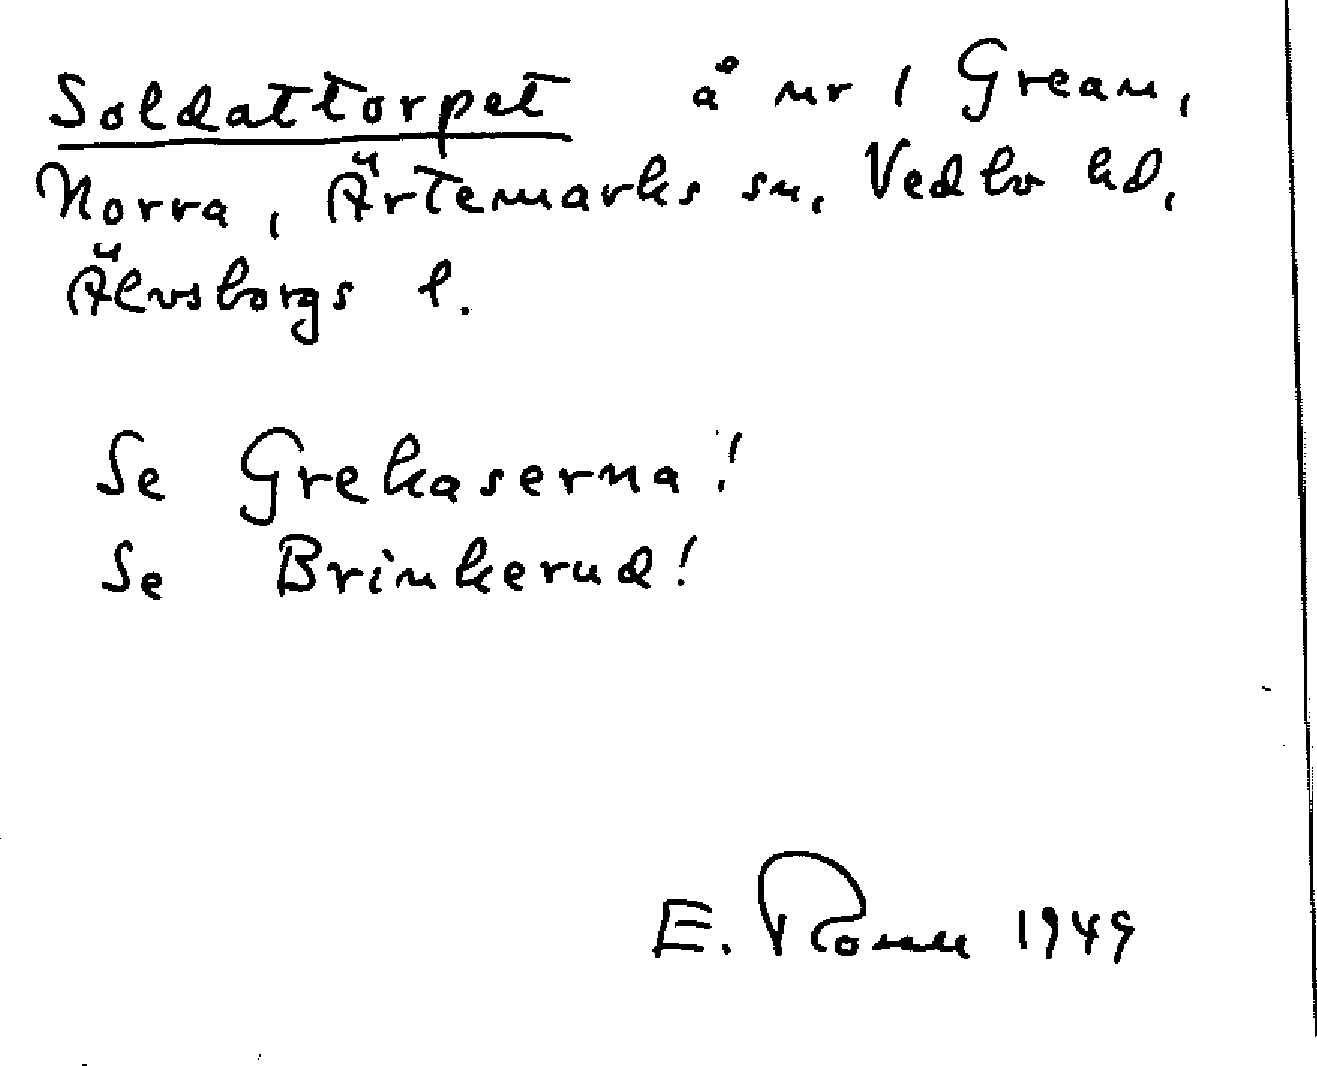 Soldattorpet å nr 1 Grean,
Norra, Ärtemarks sn, Vedbo hd,
Älvsborgs l.
Se Grekaserna!
Se Brinkerud!
E. 1949